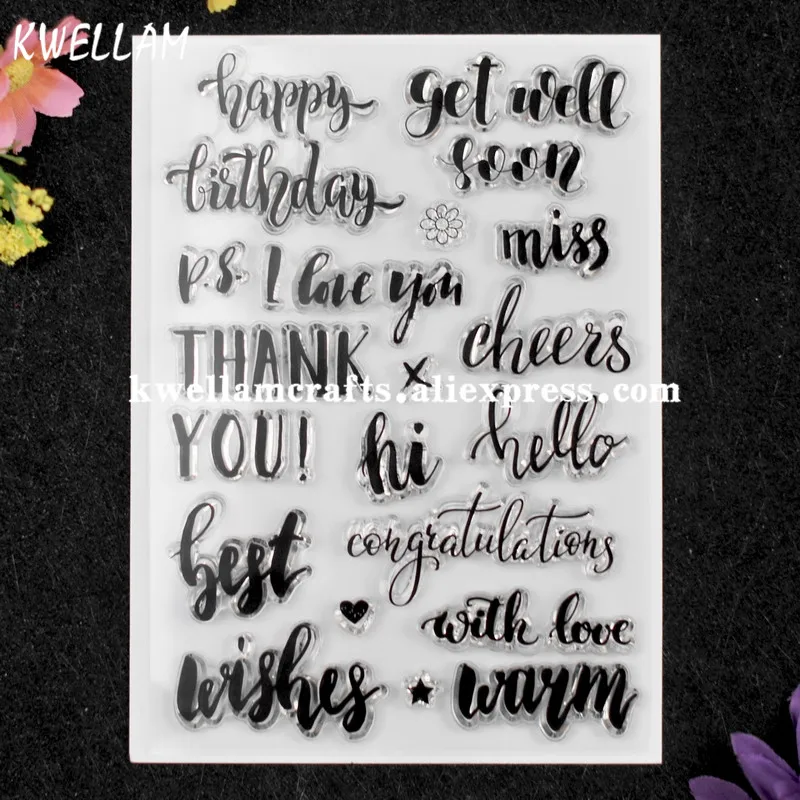 KWELLAM
happy
birthday
get well
soon
miss
p.s. I love you
THANK x
YOU!
cheers
kwellamcrafts.aliexpress.com
hi
hello
best
wishes
congratulations
with love
warm